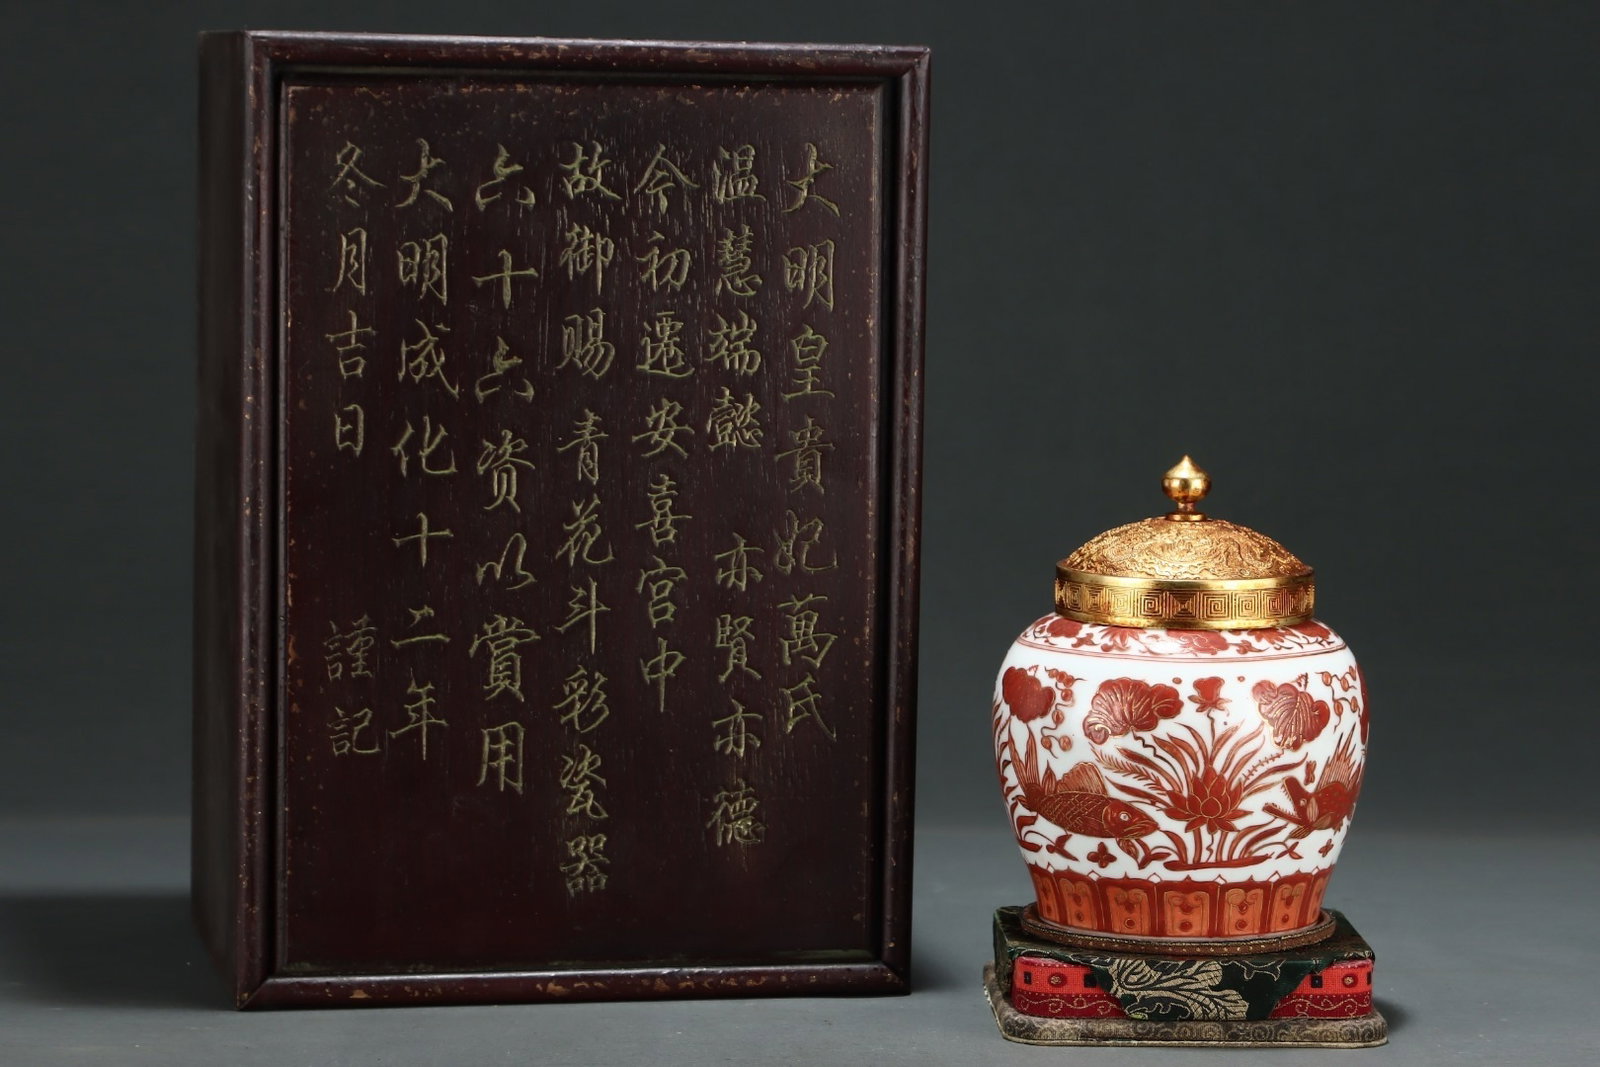 大明皇貴妃萬氏
温慧端懿 亦賢亦德
今初遷安喜宫中
故御赐 青花斗彩瓷器
六十六资以賞用
大明成化十二年
冬月吉日 謹記